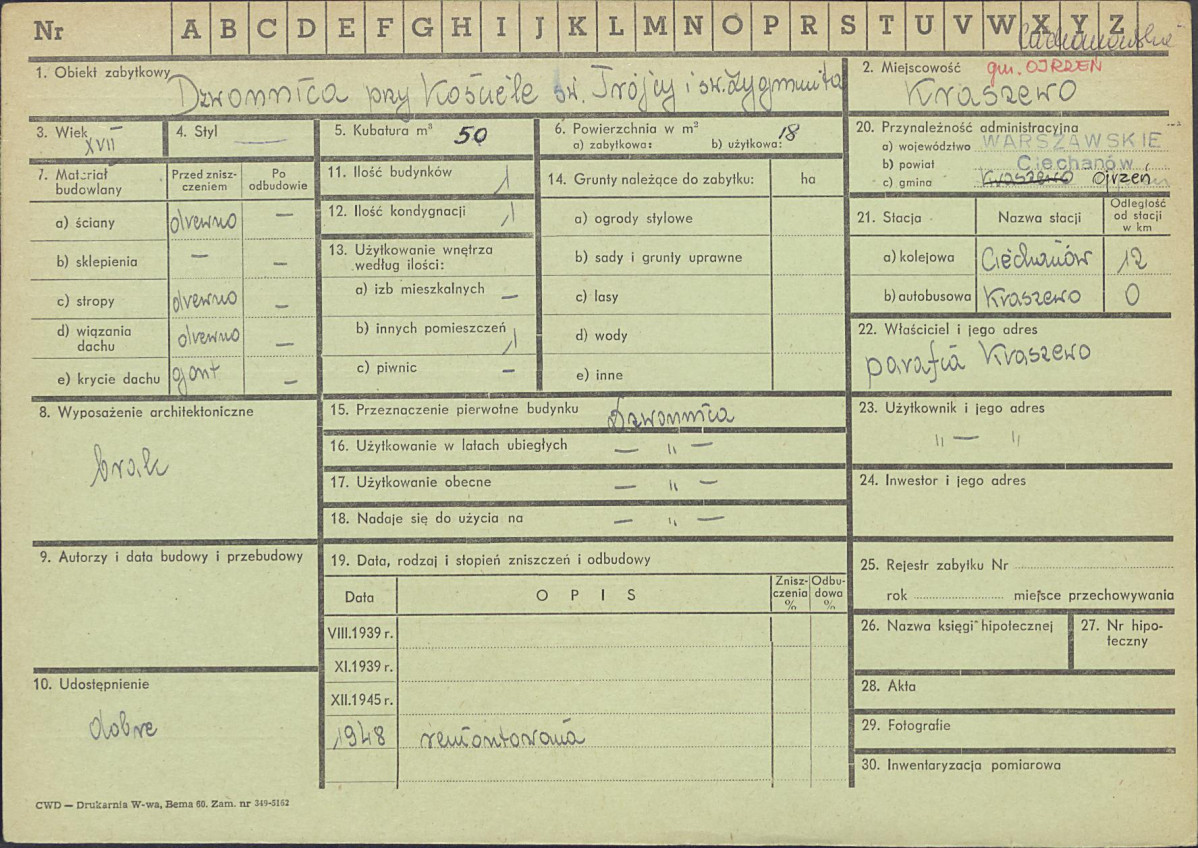 Nr A B C D E F G H I J K L M N O P R S T U V W X Y Z
1. Obiekt zabytkowy Dzwonnica przy Kościele św. Trójcy i św. Zygmunta
2. Miejscowość gm. OJRZEŃ
Kraszewo
3. Wiek XVII
4. Styl —
5. Kubatura m³ 50
6. Powierzchnia w m²
a) zabytkowa: b) użytkowa: 18
20. Przynależność administracyjna
a) województwo WARSZAWSKIE
b) powiat Ciechanów
c) gmina Kraszewo Ojrzeń
7. Materiał budowlany
Przed zniszczeniem
Po odbudowie
a) ściany drewno —
b) sklepienia — —
c) stropy drewno —
d) wiązania dachu drewno —
e) krycie dachu gont —
11. Ilość budynków 1
12. Ilość kondygnacji 1
13. Użytkowanie wnętrza według ilości:
a) izb mieszkalnych —
b) innych pomieszczeń 1
c) piwnic —
14. Grunty należące do zabytku: ha
a) ogrody stylowe
b) sady i grunty uprawne
c) lasy
d) wody
e) inne
21. Stacja Nazwa stacji Odległość od stacji w km
a) kolejowa Ciechanów 12
b) autobusowa Kraszewo 0
22. Właściciel i jego adres
parafia Kraszewo
8. Wyposażenie architektoniczne
brak
15. Przeznaczenie pierwotne budynku Dzwonnica
16. Użytkowanie w latach ubiegłych — „ —
17. Użytkowanie obecne — „ —
18. Nadaje się do użycia na — „ —
23. Użytkownik i jego adres
„ — „
24. Inwestor i jego adres
9. Autorzy i data budowy i przebudowy
19. Data, rodzaj i stopień zniszczeń i odbudowy
Data OPIS Zniszczenia % Odbudowa %
VIII.1939 r.
XI.1939 r.
XII.1945 r.
1948 remontowana
25. Rejestr zabytku Nr
rok miejsce przechowywania
26. Nazwa księgi hipotecznej
27. Nr hipoteczny
10. Udostępnienie
dobre
28. Akta
29. Fotografie
30. Inwentaryzacja pomiarowa
CWD — Drukarnia W-wa, Bema 60. Zam. nr 349-5162